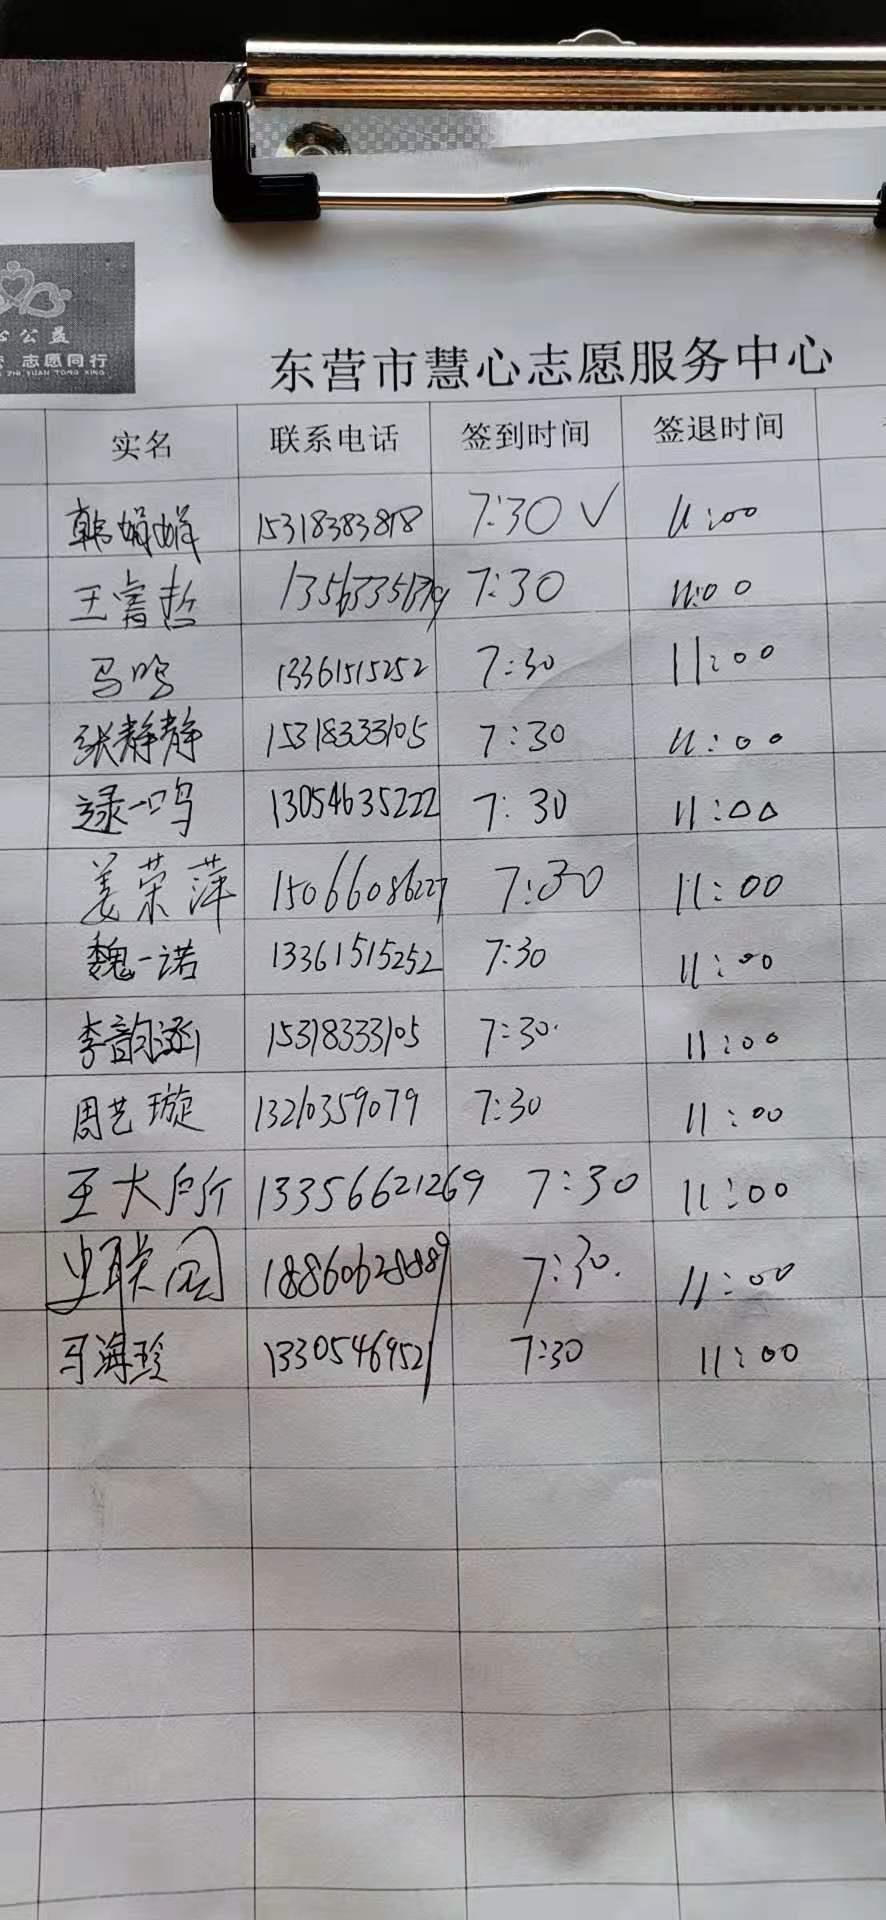 心公益
志愿同行
ZHI YUAN TONG XING
东营市慧心志愿服务中心
实名 联系电话 签到时间 签退时间
韩娟娟 15318383818 7:30 √ 11:00
王睿哲 7:30 11:00
马鸣 13361515252 7:30 11:00
张静静 15318333105 7:30 11:00
逯一鸣 13054635222 7:30 11:00
姜荣萍 15066086227 7:30 11:00
魏一诺 13361515252 7:30 11:00
李韵涵 15318333105 7:30 11:00
周艺璇 13210359079 7:30 11:00
王大 13356621269 7:30 11:00
史联国 18860628889 7:30 11:00
马海玲 13305469521 7:30 11:00